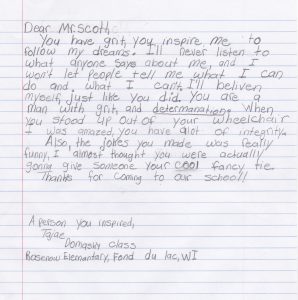 Dear Mr.Scott,
You have grit, you inspire me to
follow my dreams. I'll never listen to
what anyone says about me, and I
won't let people tell me what I can
do and what I can't. I'll beliven
myself, just like you did. You are a
man with grit, and determanation. When
you stood up out of your wheelchair
I was amazed, you have alot of integrity.
Also, the jokes you made was really
funny, I almost thought you were actually
gonna give someone your cool fancy tie.
Thanks for coming to our school!
A person you inspired,
Domasky class
Rosenow Elemantary, Fond du lac, WI